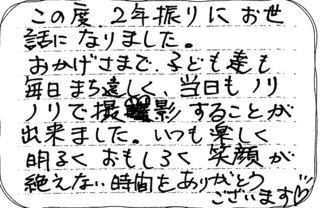 この度、2年振りにお世
話になりました。
おかげさまで、子ども達も
毎日まち遠しく、当日もノリ
ノリで撮影することが
出来ました。いつも楽しく
明るくおもしろく笑顔が
絶えない時間をありがとう
ございます♡